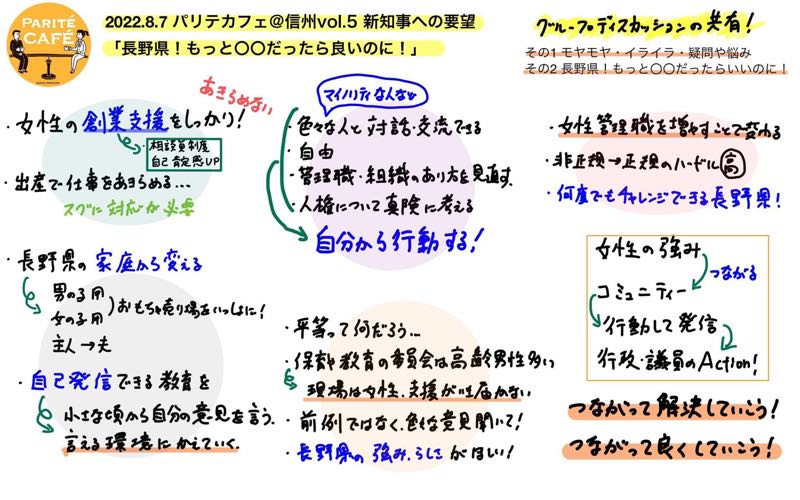 PARITÉ CAFÉ
2022.8.7 パリテカフェ@信州vol.5 新知事への要望
「長野県！もっと〇〇だったら良いのに！」
グループディスカッションの共有！
その1 モヤモヤ・イライラ・疑問や悩み
その2 長野県！もっと〇〇だったらいいのに！
あきらめない
・女性の創業支援をしっかり！
・相談員制度
自己肯定感UP
・出産で仕事をあきらめる…
スグに対応が必要
・長野県の家庭から変える
男の子用
女の子用
おもちゃ売り場をいっしょに！
主人→夫
・自己発信できる教育を
小さな頃から自分の意見を言う.
言える環境にかえていく.
マイノリティなんなや
・色々な人と対話・交流できる
・自由
・管理職・組織のあり方を見直す.
・人権について真険に考える
自分から行動する！
・平等って何だろう…
・保育や教育の委員会は高齢男性多い
現場は女性.支援が届かない
・前例ではなく、色々な意見聞いて！
・長野県の強み.らしさがほしい！
・女性管理職を増やすことで変わる
・非正規→正規のハードル高
・何度でもチャレンジできる長野県！
女性の強み
つながる
コミュニティー
行動して発信
行政・議員のAction!
つながって解決していこう！
つながって良くしていこう！